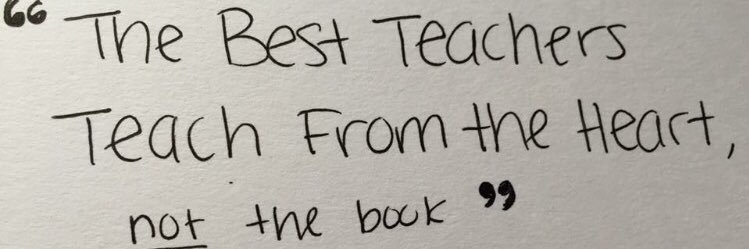 “The Best Teachers
Teach From the Heart,
not the book”